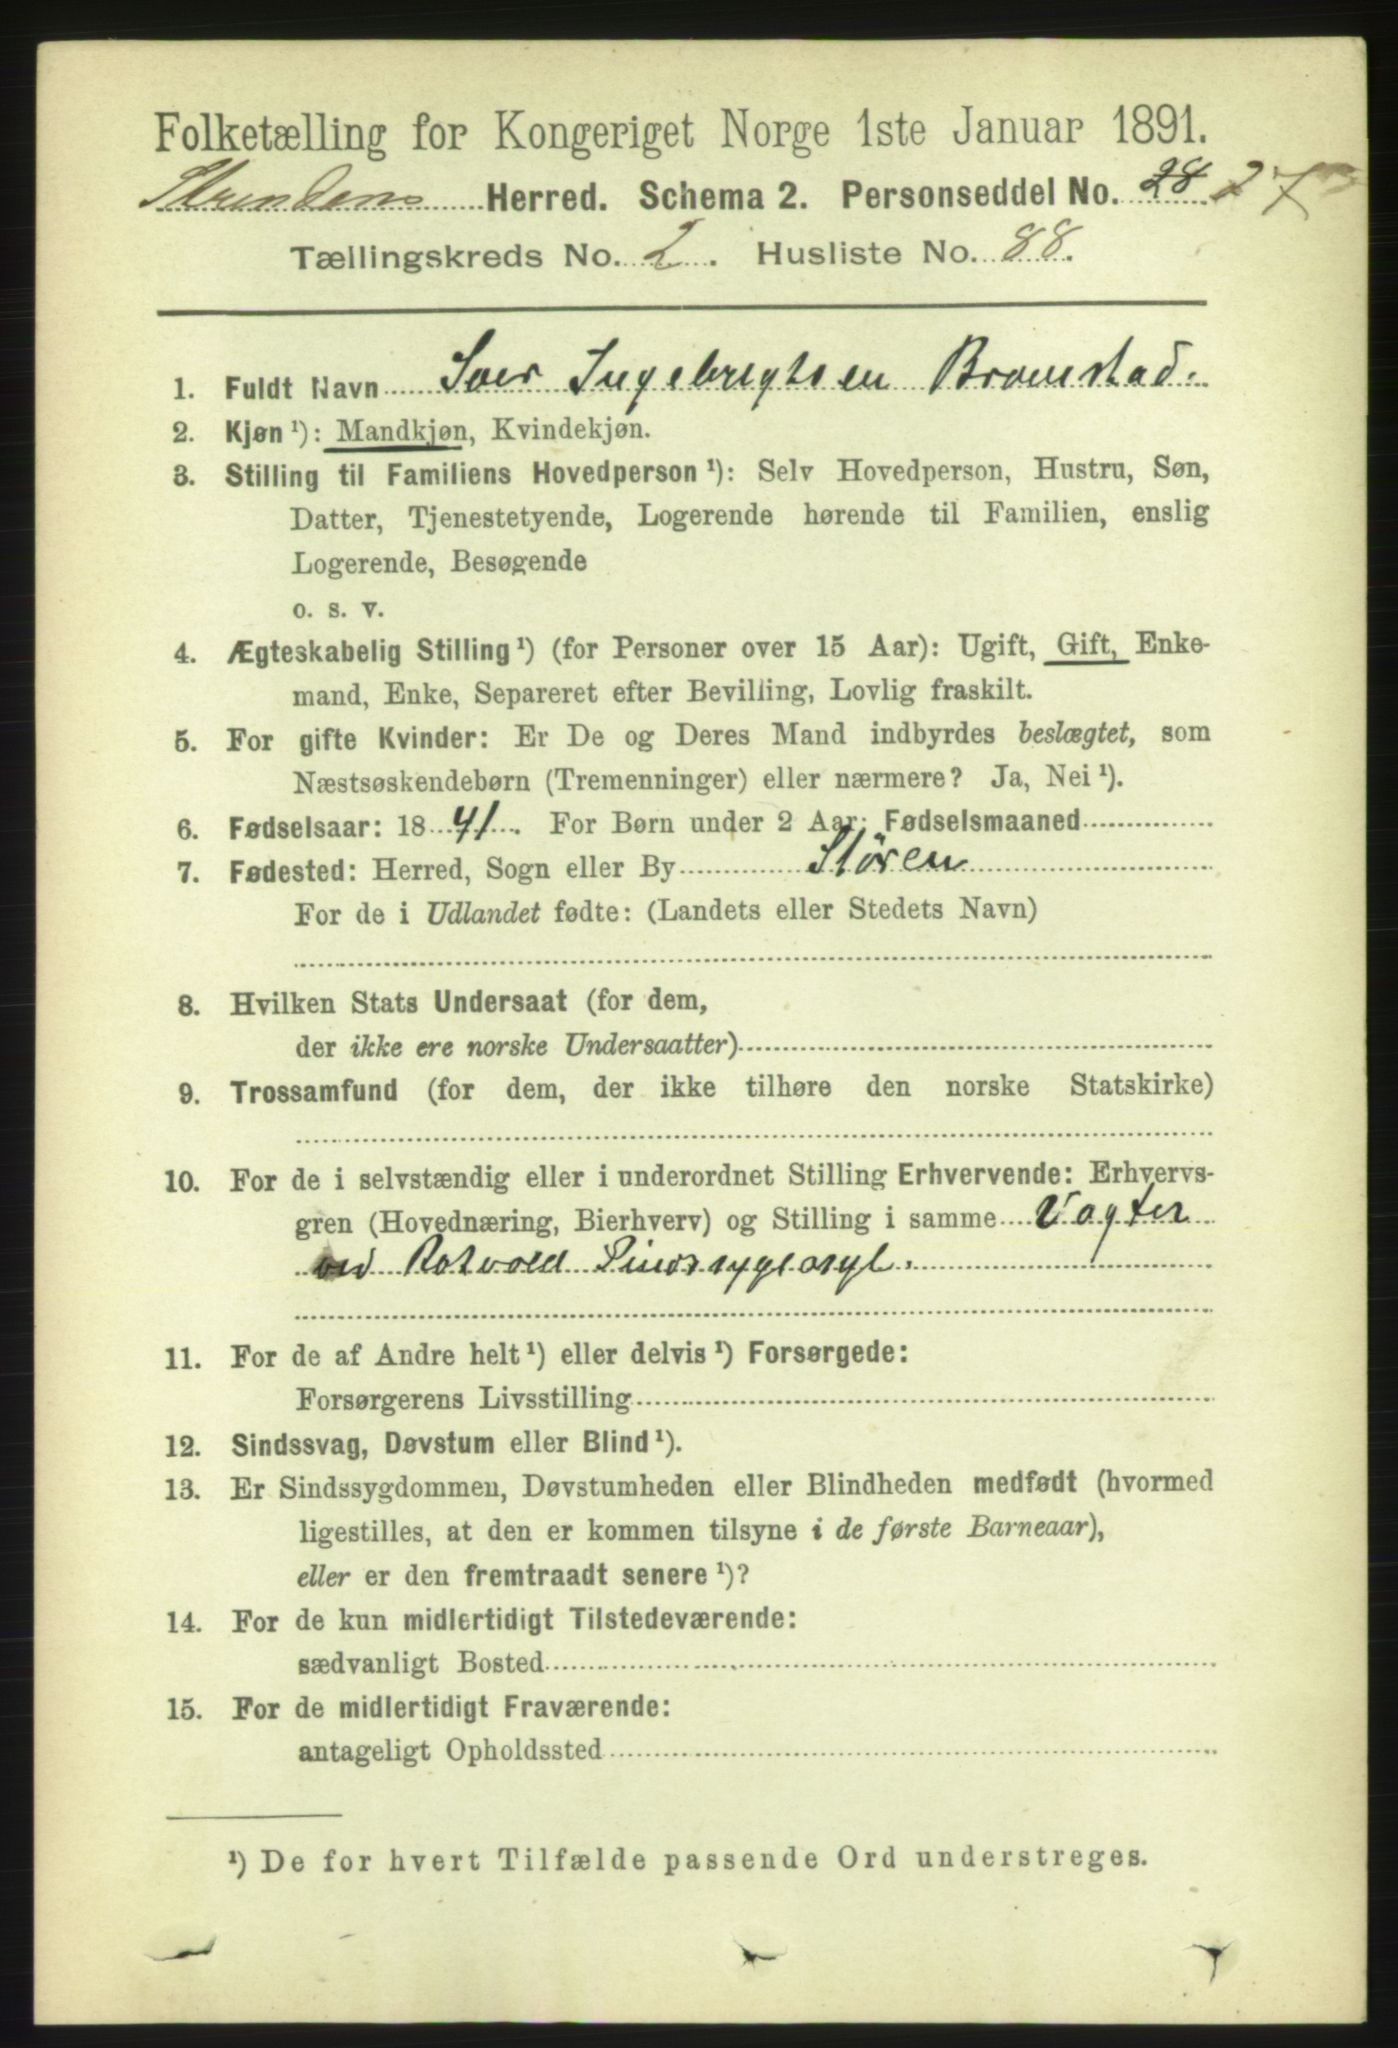 Folketælling for Kongeriget Norge 1ste Januar 1891.
Strindens Herred. Schema 2. Personseddel No. 28 27
Tællingskreds No. 2. Husliste No. 88.
1. Fuldt Navn Iver Ingebrigtsen Bromstad.
2. Kjøn ¹): Mandkjøn, Kvindekjøn.
3. Stilling til Familiens Hovedperson ¹): Selv Hovedperson, Hustru, Søn,
Datter, Tjenestetyende, Logerende hørende til Familien, enslig
Logerende, Besøgende
o. s. v.
4. Ægteskabelig Stilling ¹) (for Personer over 15 Aar): Ugift, Gift, Enke-
mand, Enke, Separeret efter Bevilling, Lovlig fraskilt.
5. For gifte Kvinder: Er De og Deres Mand indbyrdes beslægtet, som
Næstsøskendebørn (Tremenninger) eller nærmere? Ja, Nei ¹).
6. Fødselsaar: 1841. For Børn under 2 Aar: Fødselsmaaned
7. Fødested: Herred, Sogn eller By Støren
For de i Udlandet fødte: (Landets eller Stedets Navn)
8. Hvilken Stats Undersaat (for dem,
der ikke ere norske Undersaatter)
9. Trossamfund (for dem, der ikke tilhøre den norske Statskirke)
10. For de i selvstændig eller i underordnet Stilling Erhvervende: Erhvervs-
gren (Hovednæring, Bierhverv) og Stilling i samme Vagter
ved Rotvold Sindssygeasyl.
11. For de af Andre helt ¹) eller delvis ¹) Forsørgede:
Forsørgerens Livsstilling
12. Sindssvag, Døvstum eller Blind ¹).
13. Er Sindssygdommen, Døvstumheden eller Blindheden medfødt (hvormed
ligestilles, at den er kommen tilsyne i de første Barneaar),
eller er den fremtraadt senere ¹)?
14. For de kun midlertidigt Tilstedeværende:
sædvanligt Bosted
15. For de midlertidigt Fraværende:
antageligt Opholdssted
¹) De for hvert Tilfælde passende Ord understreges.